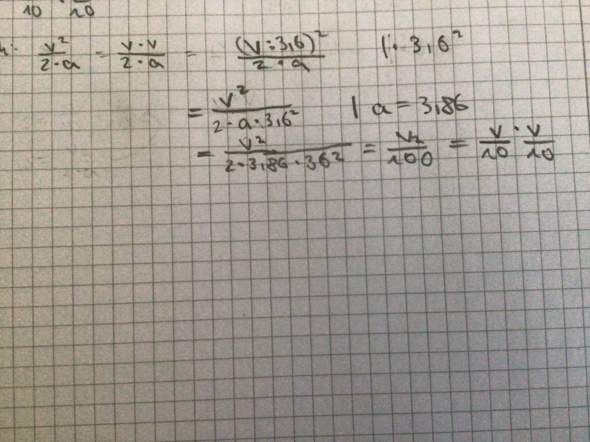 10 20
v²/2·a = v·v/2·a = (v:3,6)²/2·a |· 3,6²
= v²/2·a·3,6² | a = 3,86
= v²/2·3,86·36² = v²/100 = v/10 · v/10